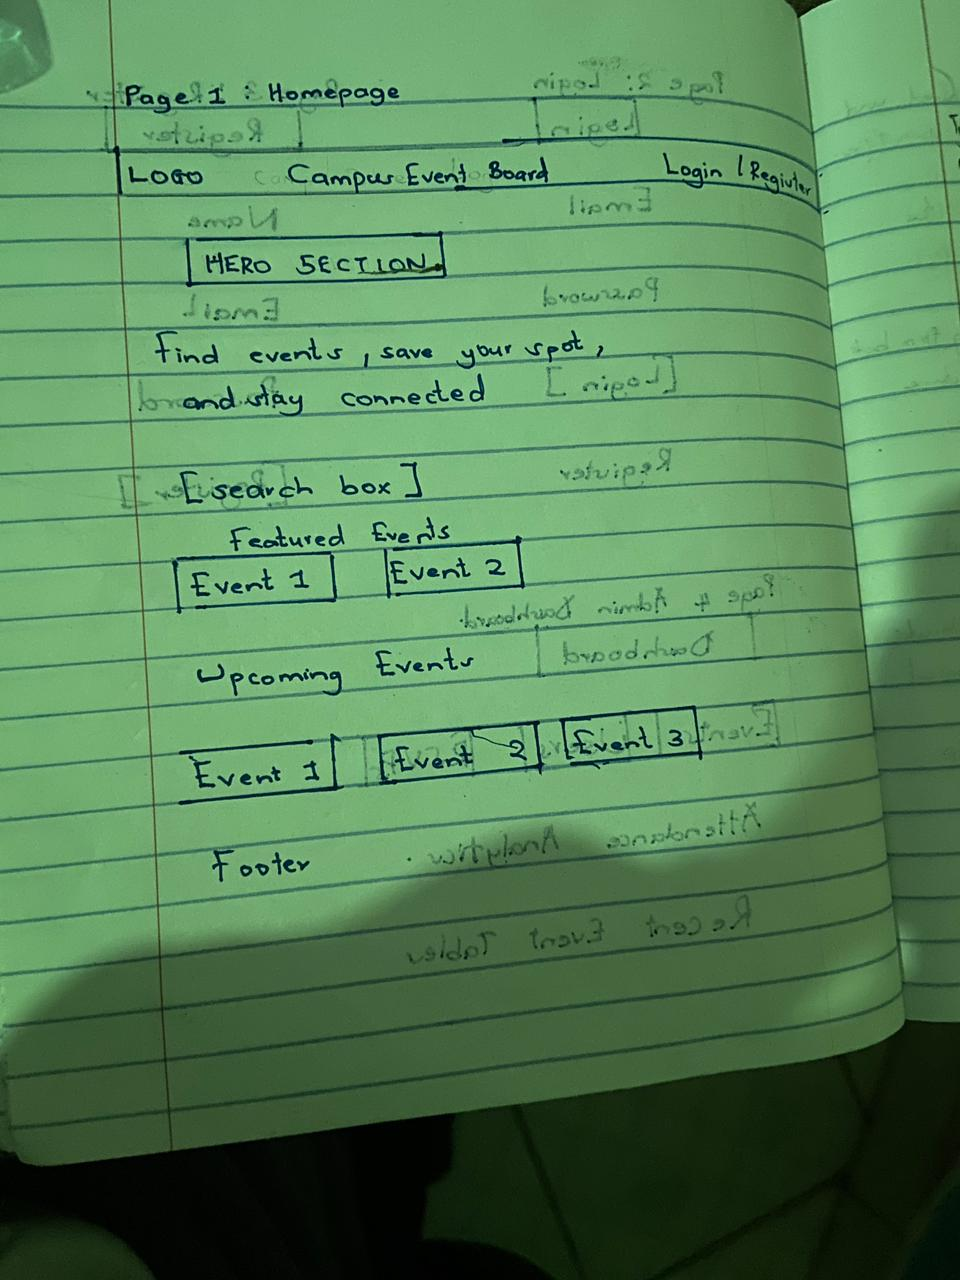 Page 1 : Homepage
LOGO Campus Event Board Login / Register
HERO SECTION
Find events, save your spot,
and stay connected
[search box]
Featured Events
Event 1 Event 2
Upcoming Events
Event 1 Event 2 Event 3
Footer